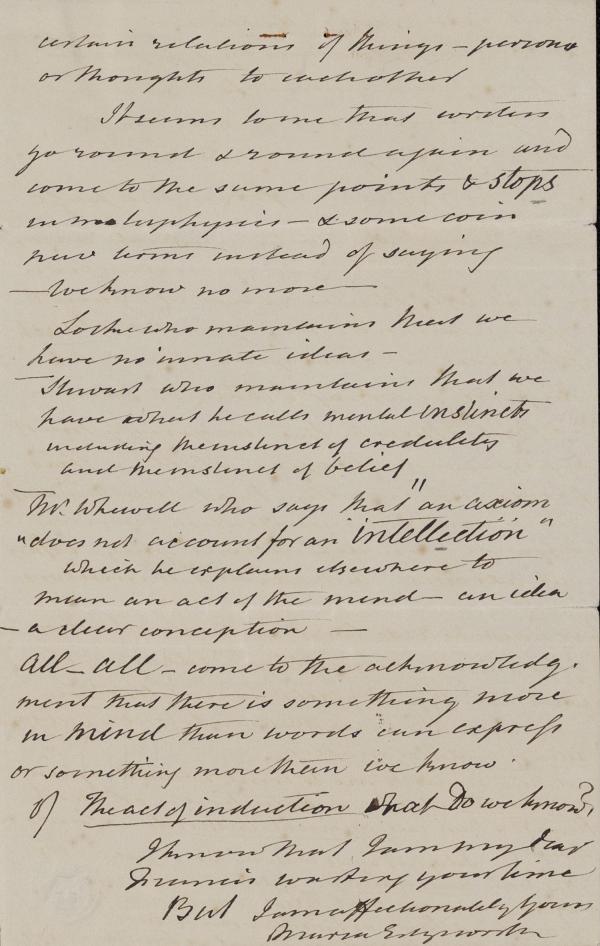 certain relations of things – persons
or thoughts to each other
It seems to me that writers
go round & round again and
come to the same points & stops
in metaphysics – & some coin
new terms instead of saying
– We know no more –
Locke who maintains that we
have no innate ideas –
Stewart who maintains that we
have what he calls mental instincts
including the instinct of credulity
and the instinct of belief
Mr. Whewell who says that "an axiom
"does not account for an intellection"
which he explains elsewhere to
mean an act of the mind – an idea
– a clear conception –
All – all – come to the acknowledg-
ment that there is something more
in mind than words can express
or something more than we know.
Of The act of induction what Do we know?
I know that I am my dear
Francis wasting your time
But I am affectionately yours
Maria Edgeworth